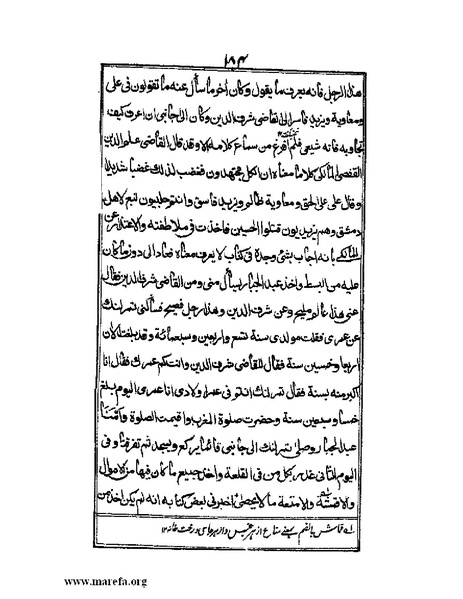 ١٨٤
هذا الرجل فانه يعرف ما يقول وكان آخر ما سأل عنه ما تقولون فى على
ومعاوية ويزيد فاسر الى القاضى شرف الدين وكان الى جانبى ان اعرف كيف
تجاوبه فانه شيعى فلم افرغ من سماع كلامه الا وقد قال القاضى علم الدين
القفصى المالكى كلاما معناه ان الكل مجتهدون فغضب لذلك غضبا شديدا
وقال على على الحق ومعاوية ظالم ويزيد فاسق وانتم حلبيون تبع لاهل
دمشق وهم يزيديون قتلوا الحسين فاخذت فى ملاطفته والاعتذار عن
المالكى بانه اجاب بشئ وجده فى كتاب لا يعرف معناه فعاد الى دون ما كان
عليه من البسط واخذ عبد الجبار يسأل منى ومن القاضى شرف الدين فقال
عنى هذا عالم مليح وعن شرف الدين وهذا رجل فصيح فسألنى تمرلنك
عن عمرى فقلت مولدى سنة تسع واربعين وسبعمائة وقد بلغت الان
اربعا وخمسين سنة فقال للقاضى شرف الدين وانت كم عمرك فقال انا
اكبر منه بسنة فقال تمرلنك انتم فى عمر اولادى انا عمرى اليوم بلغ
خمسا وسبعين سنة وحضرت صلوة المغرب واقيمت الصلوة وامّنا
عبد الجبار وصلى تمرلنك الى جانبى قائما يركع ويسجد ثم تفرقنا وفى
اليوم الثانى غدر بكل من فى القلعة واخذ جميع ما كان فيها من الاموال
والاقمشة والامتعة ما لا يحصى اخبر فى بعض كتابه انه لم يكن اخذ من
قماش بالضم
www.marefa.org